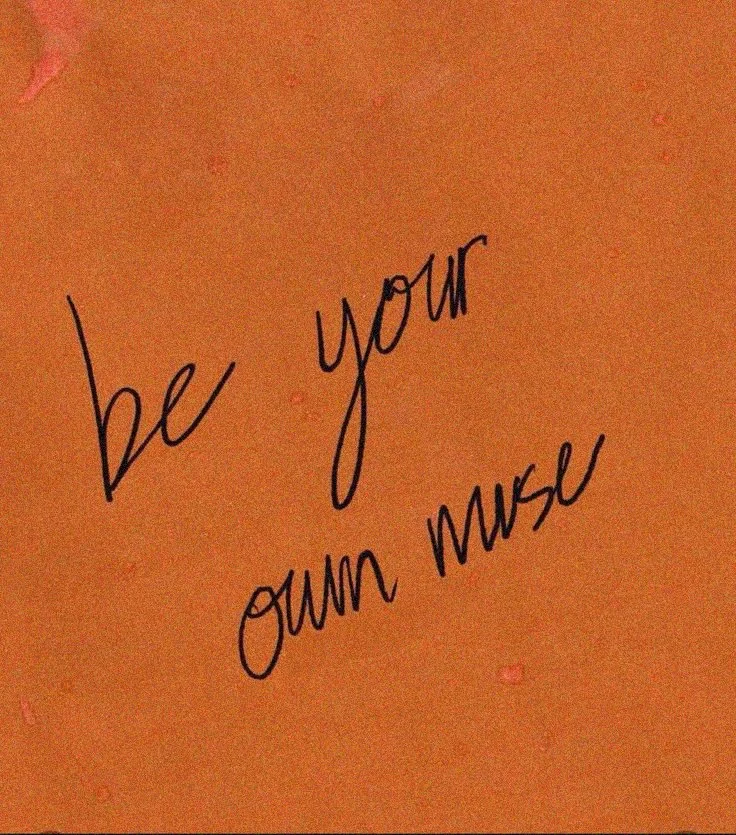 be your
own muse